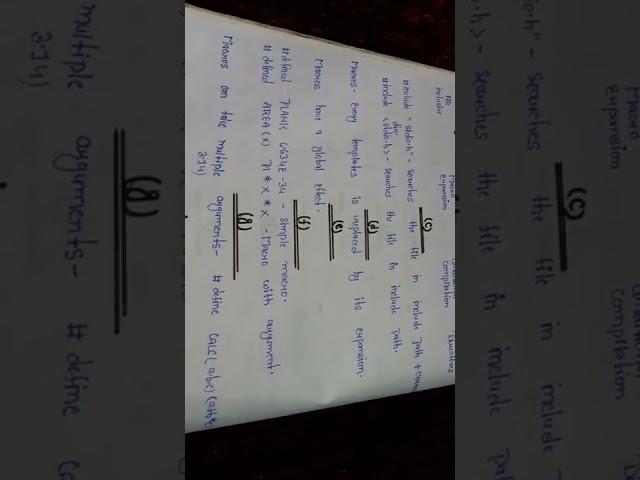 File inclusive Macro Expansion compilation Directives
(c)
#include "stdio.h" - searches the file in include path + current
dir
#include <stdio.h> - searches the file in include path.
(d)
Macros - Every templates is replaced by its expansion.
(e)
Macros have a global Effect.
(f)
#defined PLANK 6.634E-34 - simple macro.
#defined AREA(x) PI * x * x - Macro with argument.
(g)
Macros can take multiple arguments - #define CALC(a,b,c)
3.14)